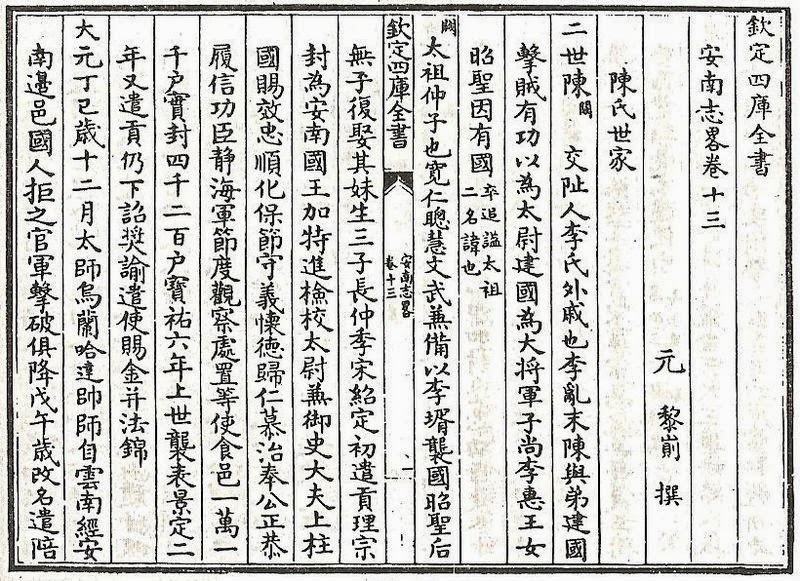 欽定四庫全書
安南志畧卷十三
元 黎崱 撰
陳氏世家
二世陳闕 交阯人李氏外戚也李亂末陳與弟建國
擊賊有功以為太尉建國為大將軍子尚李惠王女
昭聖因有國卒追謚太祖二名諱也
闕太祖仲子也寛仁聰慧文武兼備以李壻襲國昭聖后
欽定四庫全書
安南志畧
卷十三
一
無子復娶其妹生三子長仲季宋紹定初遣貢理宗
封為安南國王加特進檢校太尉兼御史大夫上柱
國賜效忠順化保節守義懷德歸仁慕治奉公正恭
履信功臣静海軍節度觀察處置等使食邑一萬一
千户實封四千二百户寶祐六年上世襲表景定二
年又遣貢仍下詔奬諭遣使賜金并法錦
大元丁巳歳十二月太師烏蘭哈達帥師自雲南經安
南邊邑國人拒之官軍擊破俱降戊午歳改名遣陪